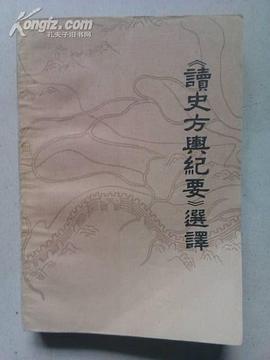 《讀史方輿紀要》選譯
孔夫子旧书网